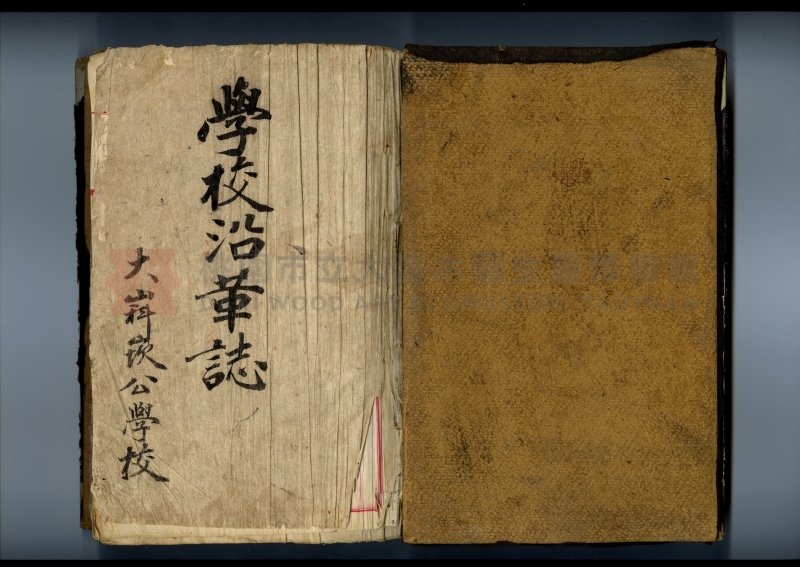 學校沿革誌
大嵙崁公學校
市立大
WOOD ART